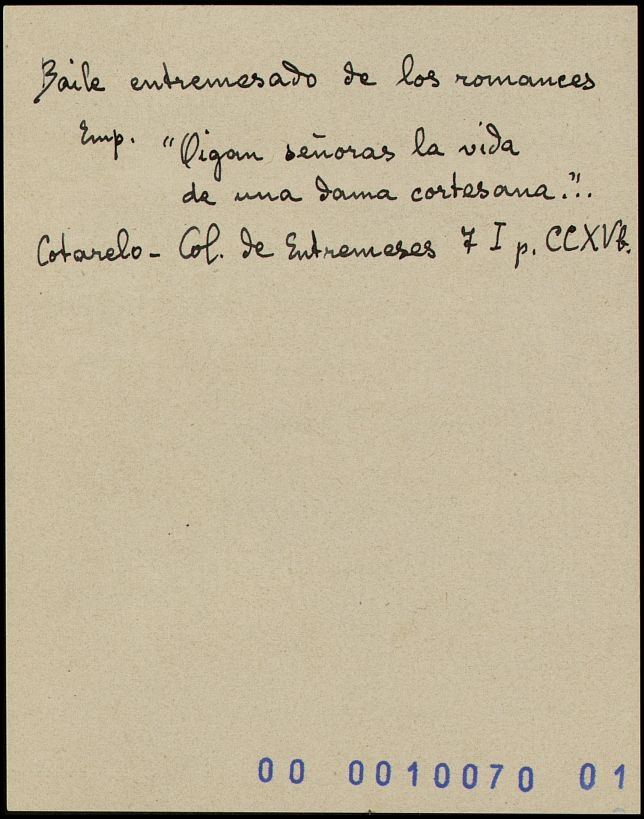 Baile entremesado de los romances
Emp. "Oigan señoras la vida
de una dama cortesana.".
Cotarelo - Col. de Entremeses T I p. CCXVb.
00 0010070 01